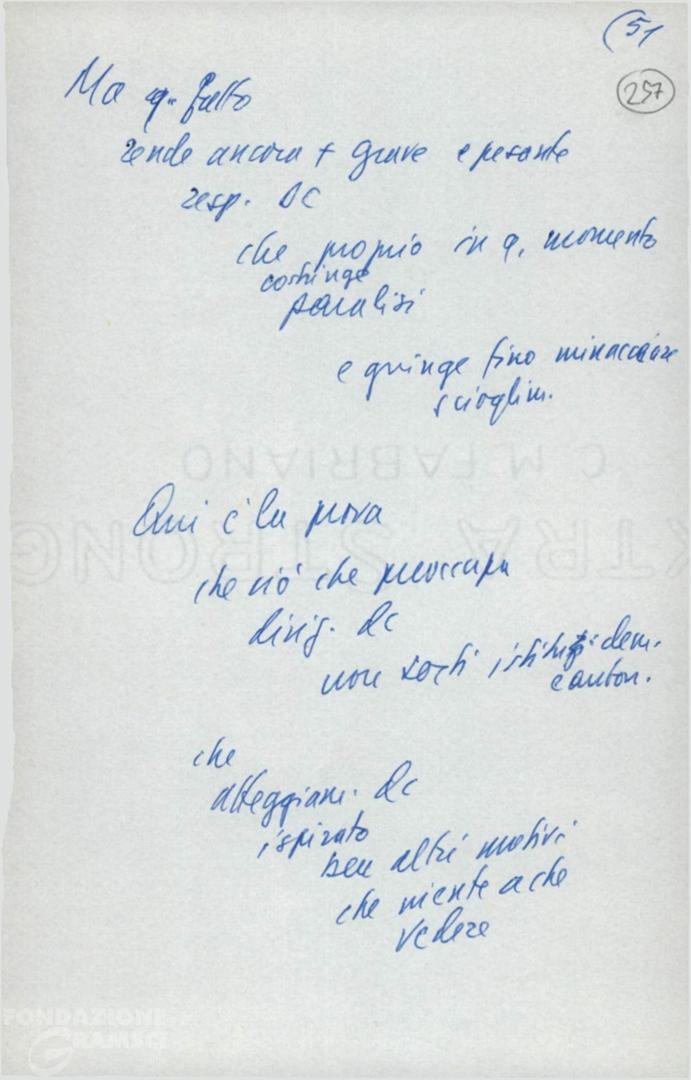 (51
257
Ma q. fatto
rende ancora + grave e pesante
resp. DC
che proprio in q. momento
costringe
paralisi
e spinge fino minacciare
scioglim.
C.M. FABRIANO
EXTRA STRONG
Qui c'è la prova
che ciò che preoccupa
dirig. DC
non sorti istituz. dem.
e auton.
che
atteggiam. DC
ispirato
ben altri motivi
che niente a che
vedere
FONDAZIONE
GRAMSCI